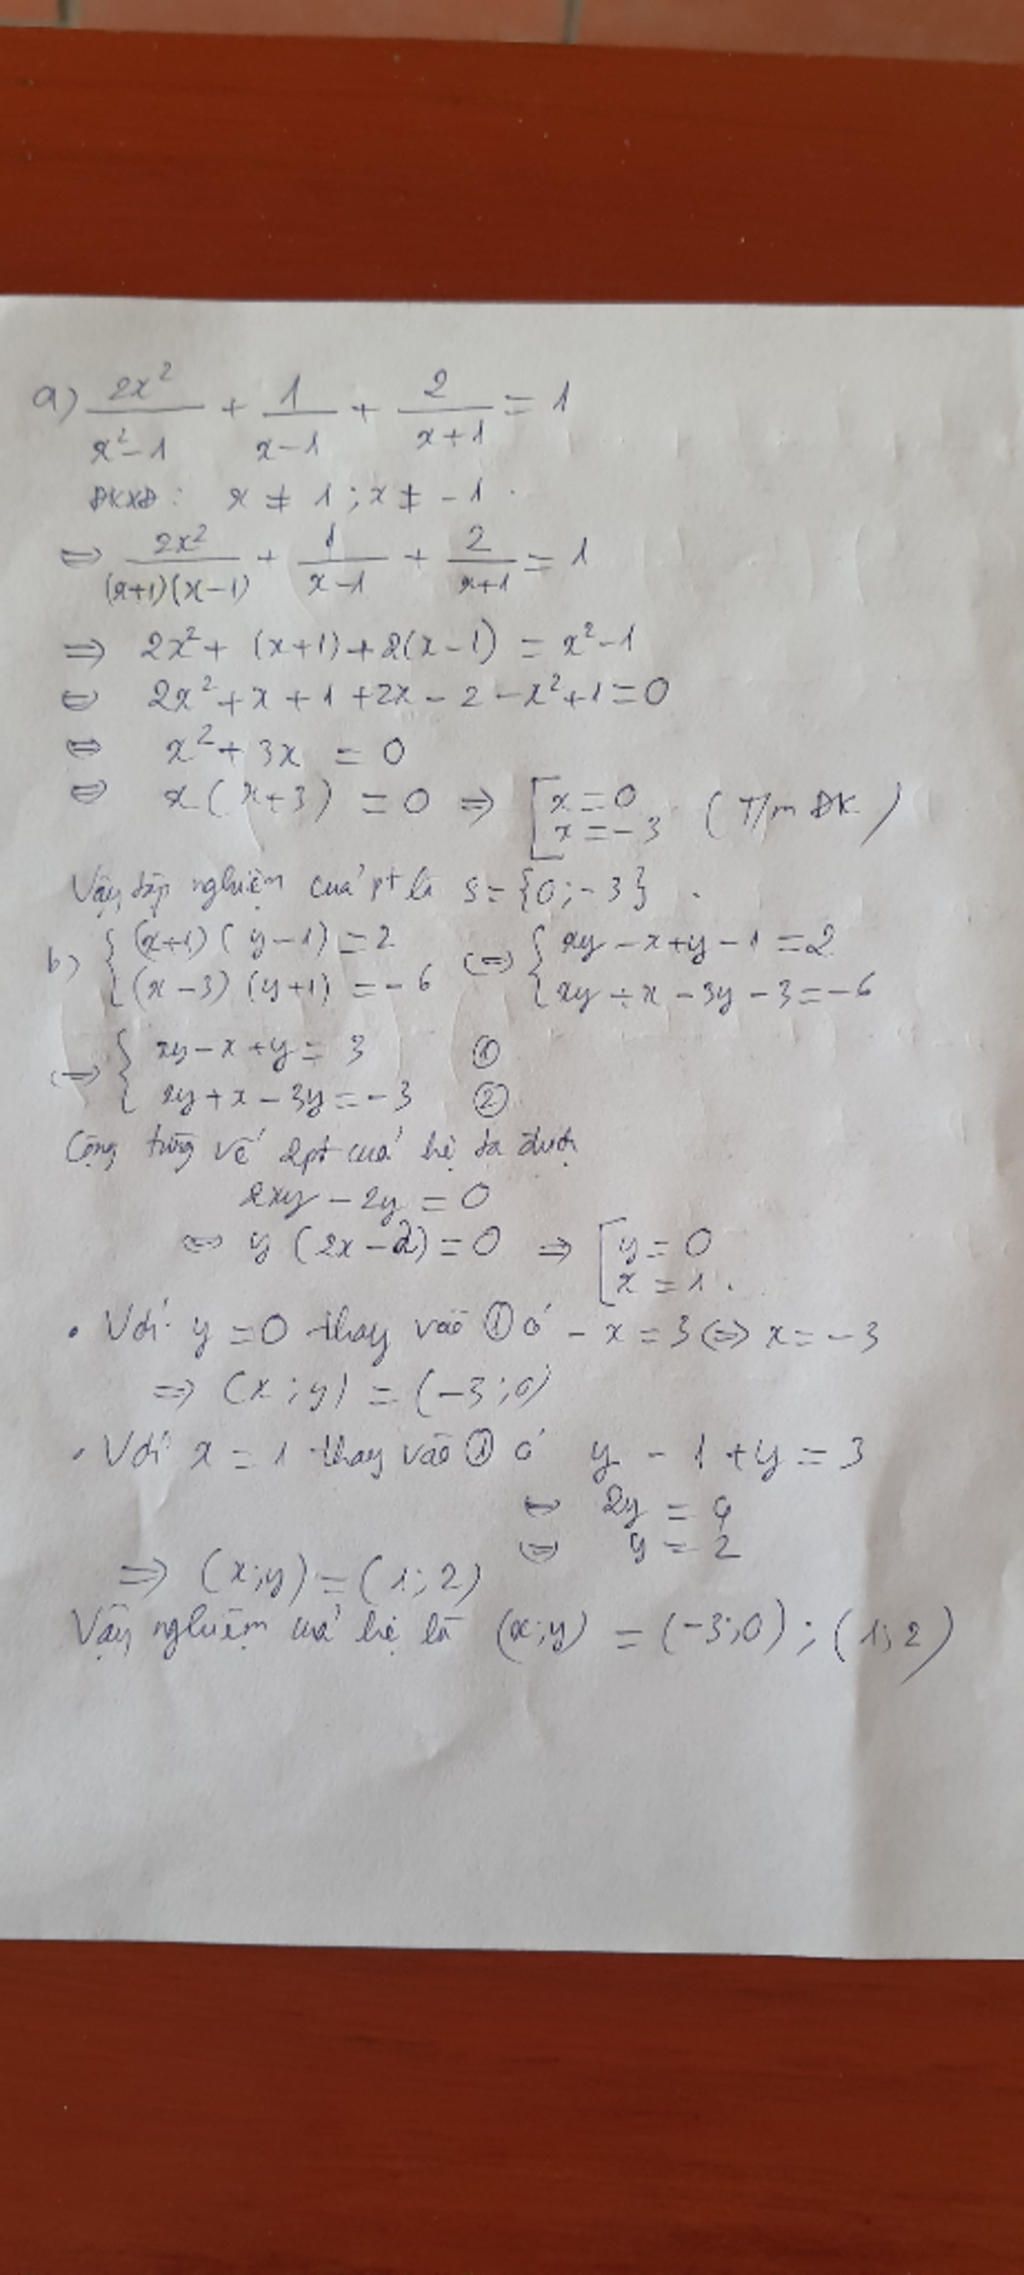 a) 2x²/(x²-1) + 1/(x-1) + 2/(x+1) = 1
ĐKXĐ: x ≠ 1 ; x ≠ -1.
⇔ 2x²/((x+1)(x-1)) + 1/(x-1) + 2/(x+1) = 1
⇒ 2x² + (x+1) + 2(x-1) = x²-1
⇔ 2x² + x + 1 + 2x - 2 - x² + 1 = 0
⇔ x² + 3x = 0
⇔ x(x+3) = 0 ⇒ [ x = 0 ; x = -3 (T/m ĐK)
Vậy tập nghiệm của pt là S = {0;-3}.
b) { (x+1)(y-1) = 2 ; (x-3)(y+1) = -6 ⇔ { xy - x + y - 1 = 2 ; xy + x - 3y - 3 = -6
⇔ { xy - x + y = 3 ①
xy + x - 3y = -3 ②
Cộng từng vế 2pt của hệ ta được
2xy - 2y = 0
⇔ y(2x-2) = 0 ⇒ [ y = 0 ; x = 1.
• Với y = 0 thay vào ① có -x = 3 ⇔ x = -3
⇒ (x;y) = (-3;0)
• Với x = 1 thay vào ① có y - 1 + y = 3
⇔ 2y = 4
⇔ y = 2
⇒ (x;y) = (1;2)
Vậy nghiệm của hệ là (x;y) = (-3;0);(1;2)